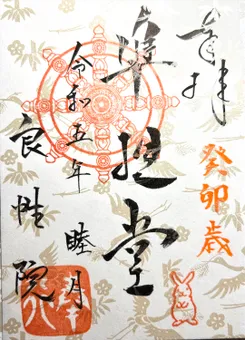 奉拝
癸卯歳
準提堂
令和五年
睦月
良性院